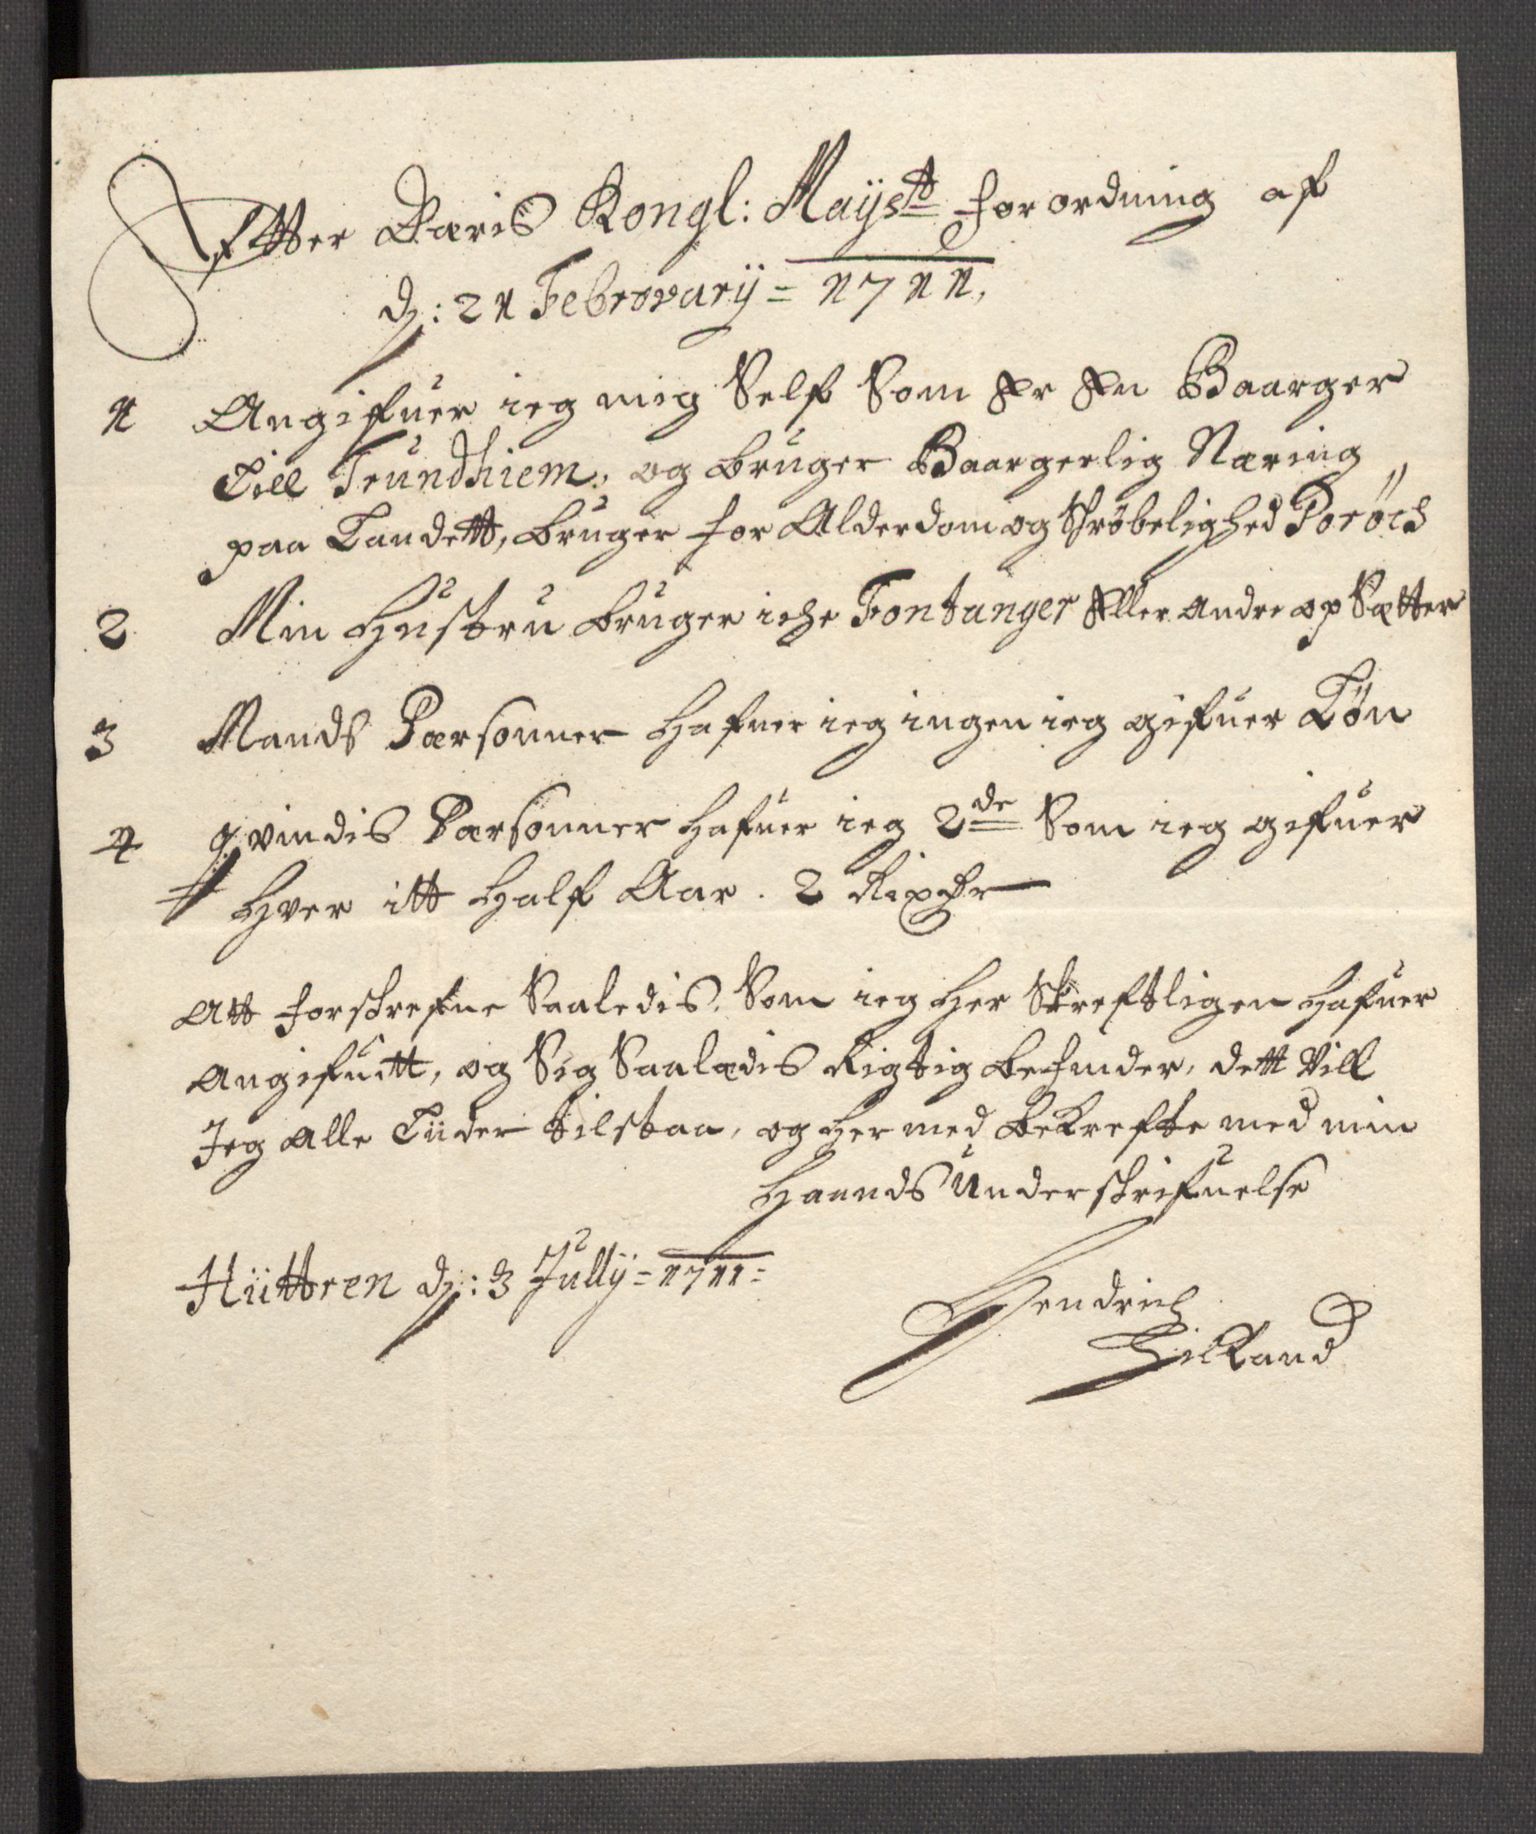 Efftter Dæris Kongl: Mayst: forordning af
d: 21 Febrovarij = 1711,
1 Angifuer ieg mig Self Som Er En Baarger
Till Trundhiem, og bruger Baargerlig Næring
paa Landett, bruger for Alderdom og Skrøbelighed Porøch
2 Min Hustru bruger iche Fontanger Eller andre op Sætter
3 Mands Pærsonner hafuer ieg ingen ieg gifuer Løn
4 qvindis Pærsonner hafuer ieg 2de Som ieg gifuer
Hver itt Half Aar . 2 Rixdr
Att forskrefne Saaledis, Som ieg her Skreftligen hafuer
Angifuitt, og Sig Saalædis Rigtig befinder, dett Vill
Jeg Alle Tiider tilstaa, og her med bekrefte med min
Haands Underskrifuelse
Hiittren d: 3 Jullij = 1711 =
Hendrich
Sikland